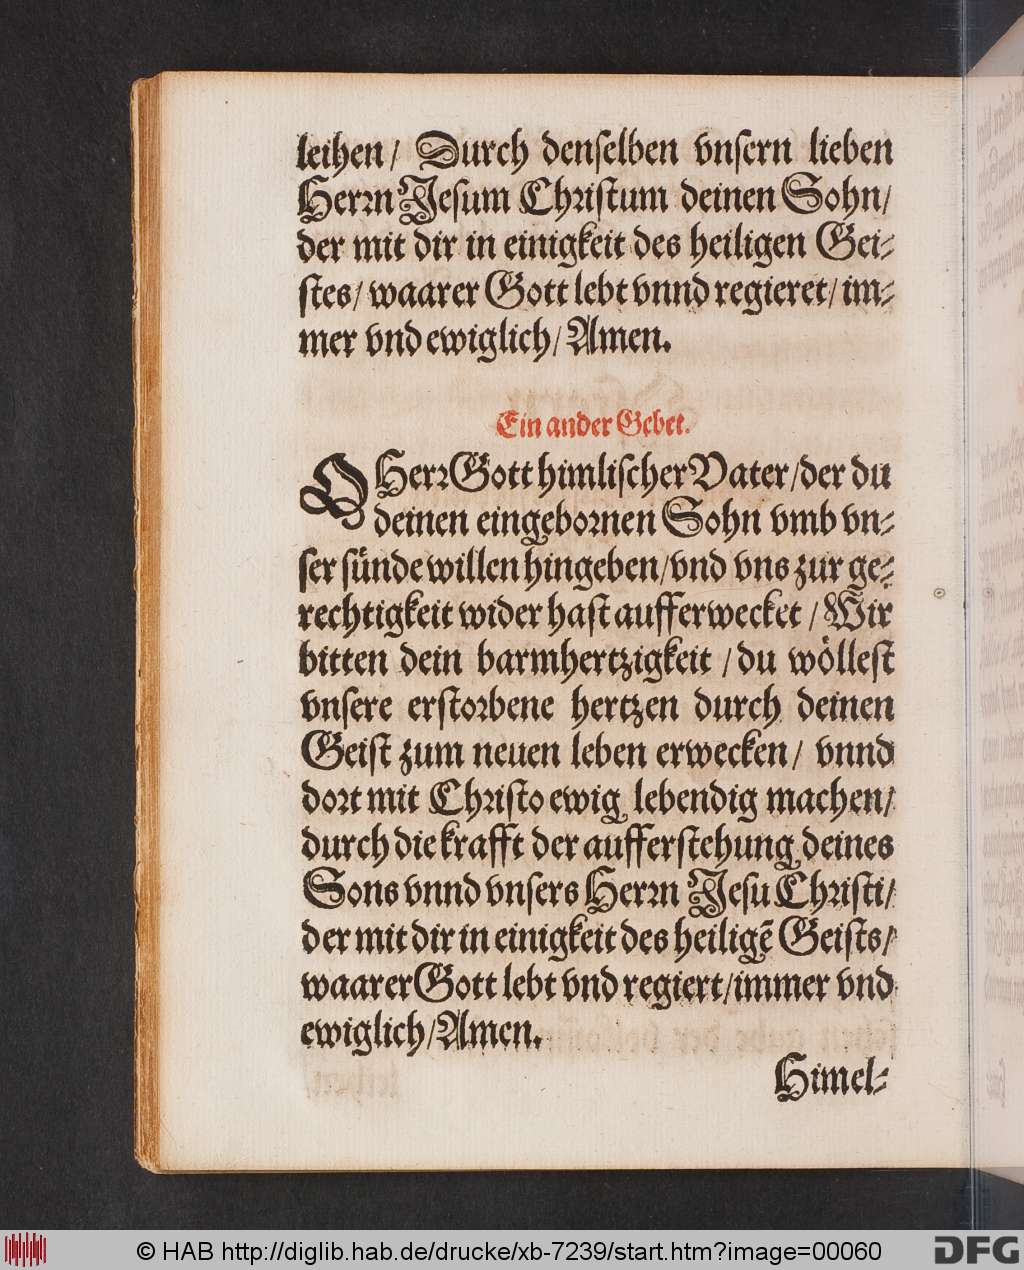 leihen / Durch denselben vnsern lieben
Herrn Jesum Christum deinen Sohn /
der mit dir in einigkeit des heiligen Gei-
stes / waarer Gott lebt vnnd regieret / im-
mer vnd ewiglich / Amen.
Ein ander Gebet.
O Herr Gott himlischer Vater / der du
deinen eingebornen Sohn vmb vn-
ser sünde willen hingeben / vnd vns zur ge-
rechtigkeit wider hast aufferwecket / Wir
bitten dein barmhertzigkeit / du wöllest
vnsere erstorbene hertzen durch deinen
Geist zum neuen leben erwecken / vnnd
dort mit Christo ewig lebendig machen /
durch die krafft der aufferstehung deines
Sons vnnd vnsers Herrn Jesu Christi /
der mit dir in einigkeit des heiligẽ Geists /
waarer Gott lebt vnd regiert / immer vnd
ewiglich / Amen.
Himel-
© HAB http://diglib.hab.de/drucke/xb-7239/start.htm?image=00060
DFG